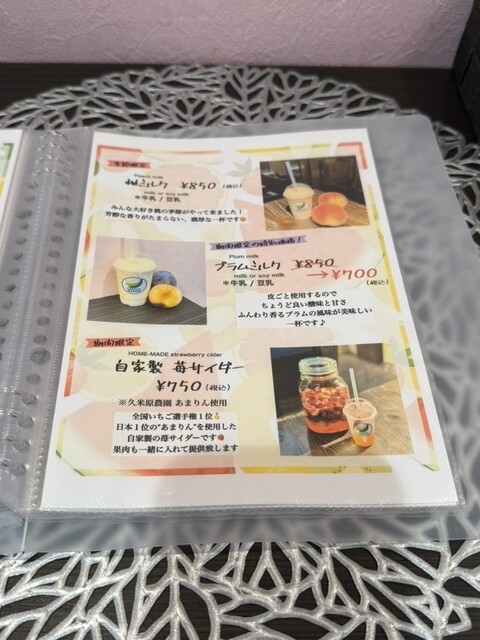 期間限定
Peach milk
桃ミルク ¥850 (税込)
milk or soy milk
＊牛乳 / 豆乳
みんな大好き桃の季節がやって来ました！
芳醇な香りがたまらない、濃厚な一杯です
期間限定の特別価格！
Plum milk
プラムミルク ¥850
milk or soy milk
→¥700
＊牛乳 / 豆乳
(税込)
皮ごと使用するので
ちょうど良い酸味と甘さ
ふんわり香るプラムの風味が美味しい
一杯です♪
期間限定
HOME-MADE strawberry cider
自家製 苺サイダー
¥750 (税込)
※久米原農園 あまりん使用
全国いちご選手権１位🏅
日本１位の"あまりん"を使用した
自家製の苺サイダーです🍓
果肉も一緒に入れて提供致します